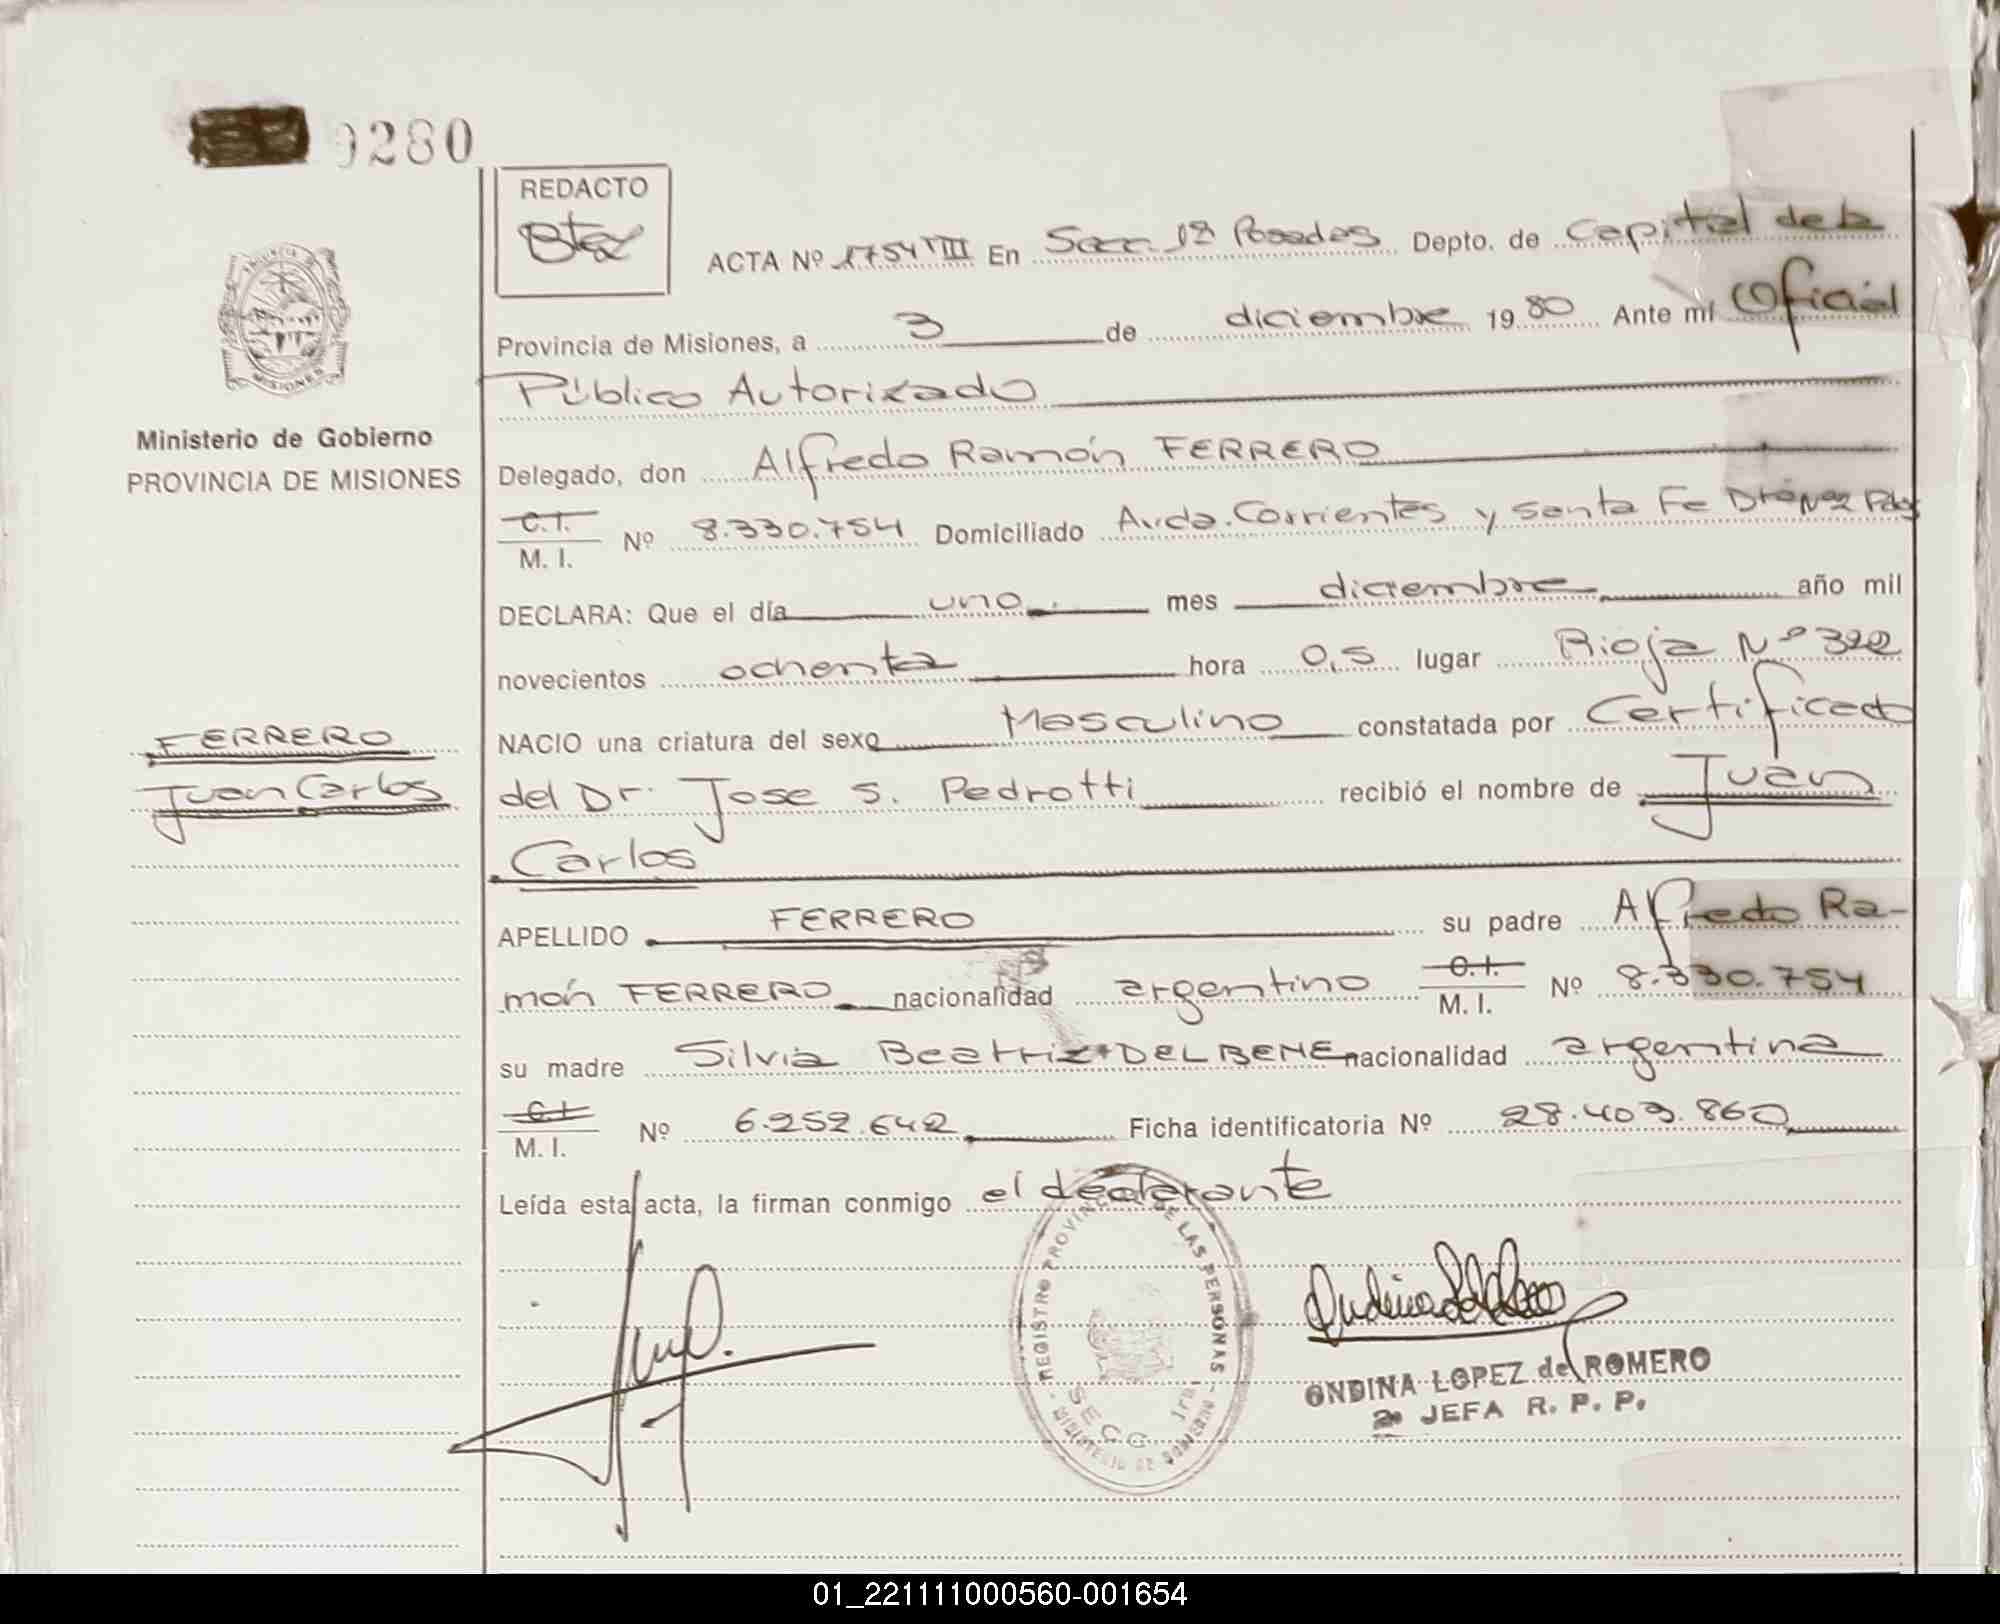 0280
REDACTO
ACTA Nº 1754 VIII En Secc. 1ª Posadas Depto. de Capital de la
Provincia de Misiones, a 3 de diciembre 19 80 Ante mí Oficial
Público Autorizado
Ministerio de Gobierno
PROVINCIA DE MISIONES
MISIONES
Delegado, don Alfredo Ramón FERRERO
C.I.
M. I. Nº 8.330.754 Domiciliado Avda. Corrientes y Santa Fe
DECLARA: Que el día uno mes diciembre año mil
novecientos ochenta hora 0,5 lugar Rioja Nº 322
FERRERO
Juan Carlos
NACIO una criatura del sexo Masculino constatada por Certificado
del Dr. Jose S. Pedrotti recibió el nombre de Juan
Carlos
APELLIDO FERRERO su padre Alfredo Ra-
món FERRERO nacionalidad argentino C.I. M. I. Nº 8.330.754
su madre Silvia Beatriz DEL BENE nacionalidad argentina
C.I.
M. I. Nº 6.252.642 Ficha identificatoria Nº 28.403.860
Leída esta acta, la firman conmigo el declarante
REGISTRO PROVINCIAL DE LAS PERSONAS - MINISTERIO DE GOBIERNO -
SECC. 1ra.
ONDINA LOPEZ de ROMERO
2ª JEFA R. P. P.
01_221111000560-001654